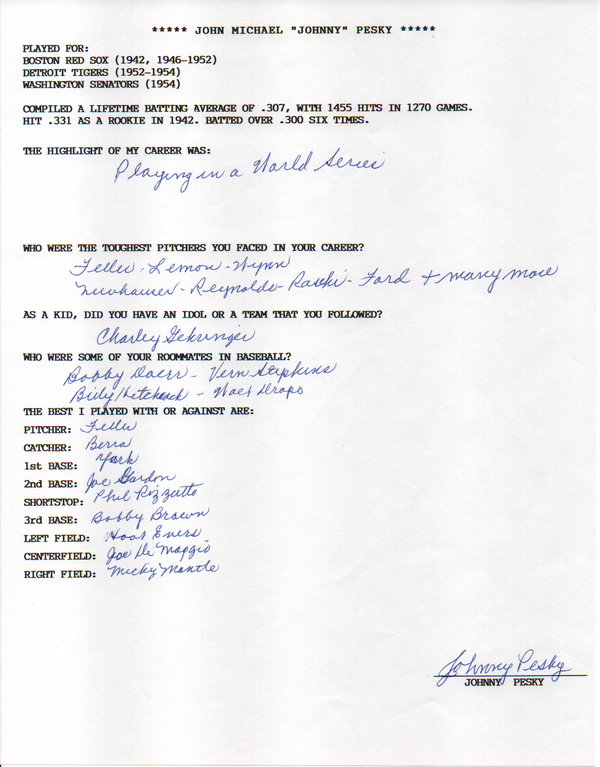 ***** JOHN MICHAEL "JOHNNY" PESKY *****
PLAYED FOR:
BOSTON RED SOX (1942, 1946-1952)
DETROIT TIGERS (1952-1954)
WASHINGTON SENATORS (1954)
COMPILED A LIFETIME BATTING AVERAGE OF .307, WITH 1455 HITS IN 1270 GAMES.
HIT .331 AS A ROOKIE IN 1942. BATTED OVER .300 SIX TIMES.
THE HIGHLIGHT OF MY CAREER WAS:
Playing in a World Series
WHO WERE THE TOUGHEST PITCHERS YOU FACED IN YOUR CAREER?
Feller - Lemon - Wynn
Newhauser - Reynolds - Raschi - Ford + many more
AS A KID, DID YOU HAVE AN IDOL OR A TEAM THAT YOU FOLLOWED?
Charley Gehringer
WHO WERE SOME OF YOUR ROOMMATES IN BASEBALL?
Bobby Doerr - Vern Stephens
Billy Hitchcock - Walt Dropo
THE BEST I PLAYED WITH OR AGAINST ARE:
PITCHER: Feller
CATCHER: Berra
1st BASE: York
2nd BASE: Joe Gordon
SHORTSTOP: Phil Rizzutto
3rd BASE: Bobby Brown
LEFT FIELD: Hoot Evers
CENTERFIELD: Joe Di Maggio
RIGHT FIELD: Micky Mantle
Johnny Pesky
JOHNNY PESKY